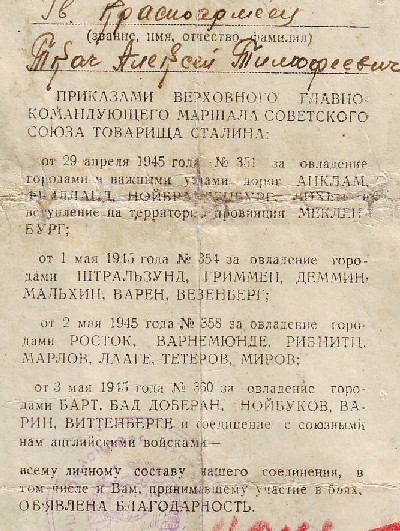 Гв красноармеец
(звание, имя, отчество, фамилия)
Ткач Алексей Тимофеевич
ПРИКАЗАМИ ВЕРХОВНОГО ГЛАВНО-
КОМАНДУЮЩЕГО МАРШАЛА СОВЕТСКОГО
СОЮЗА ТОВАРИЩА СТАЛИНА:
от 29 апреля 1945 года № 351 за овладение
городами и важными узлами дорог АНКЛАМ,
ФРИДЛАНД, НОЙБРАНДЕНБУРГ, и
вступление на территорию провинции МЕКЛЕН-
БУРГ;
от 1 мая 1945 года № 354 за овладение горо-
дами ШТРАЛЬЗУНД, ГРИММЕН, ДЕММИН,
МАЛЬХИН, ВАРЕН, ВЕЗЕНБЕРГ;
от 2 мая 1945 года № 358 за овладение горо-
дами РОСТОК, ВАРНЕМЮНДЕ, РИБНИТЦ,
МАРЛОВ, ЛААГЕ, ТЕТЕРОВ, МИРОВ;
от 3 мая 1945 года № 360 за овладение горо-
дами БАРТ, БАД ДОБЕРАН, НОЙБУКОВ, ВА-
РИН, ВИТТЕНБЕРГЕ и соединение с союзными
нам английскими войсками—
всему личному составу нашего соединения, в
том числе и Вам, принимавшему участие в боях,
ОБ'ЯВЛЕНА БЛАГОДАРНОСТЬ.